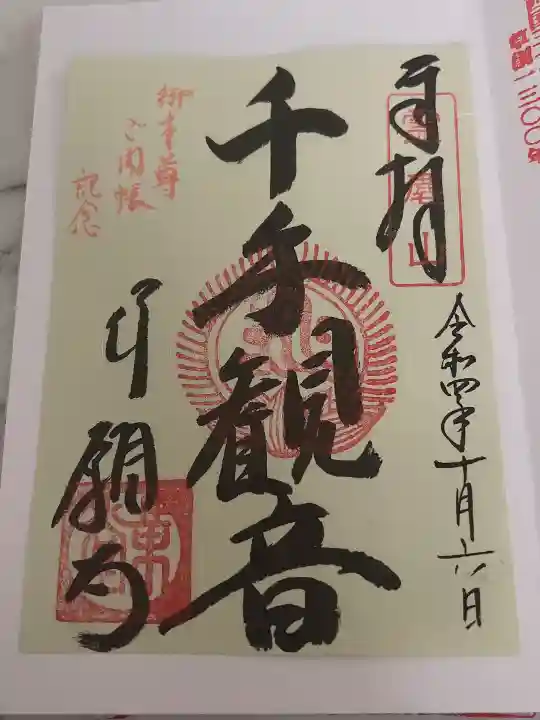 草創一三〇〇年
奉拝
霊麀山
令和四年十月六日
千手観音
御本尊
ご開帳
記念
行願寺